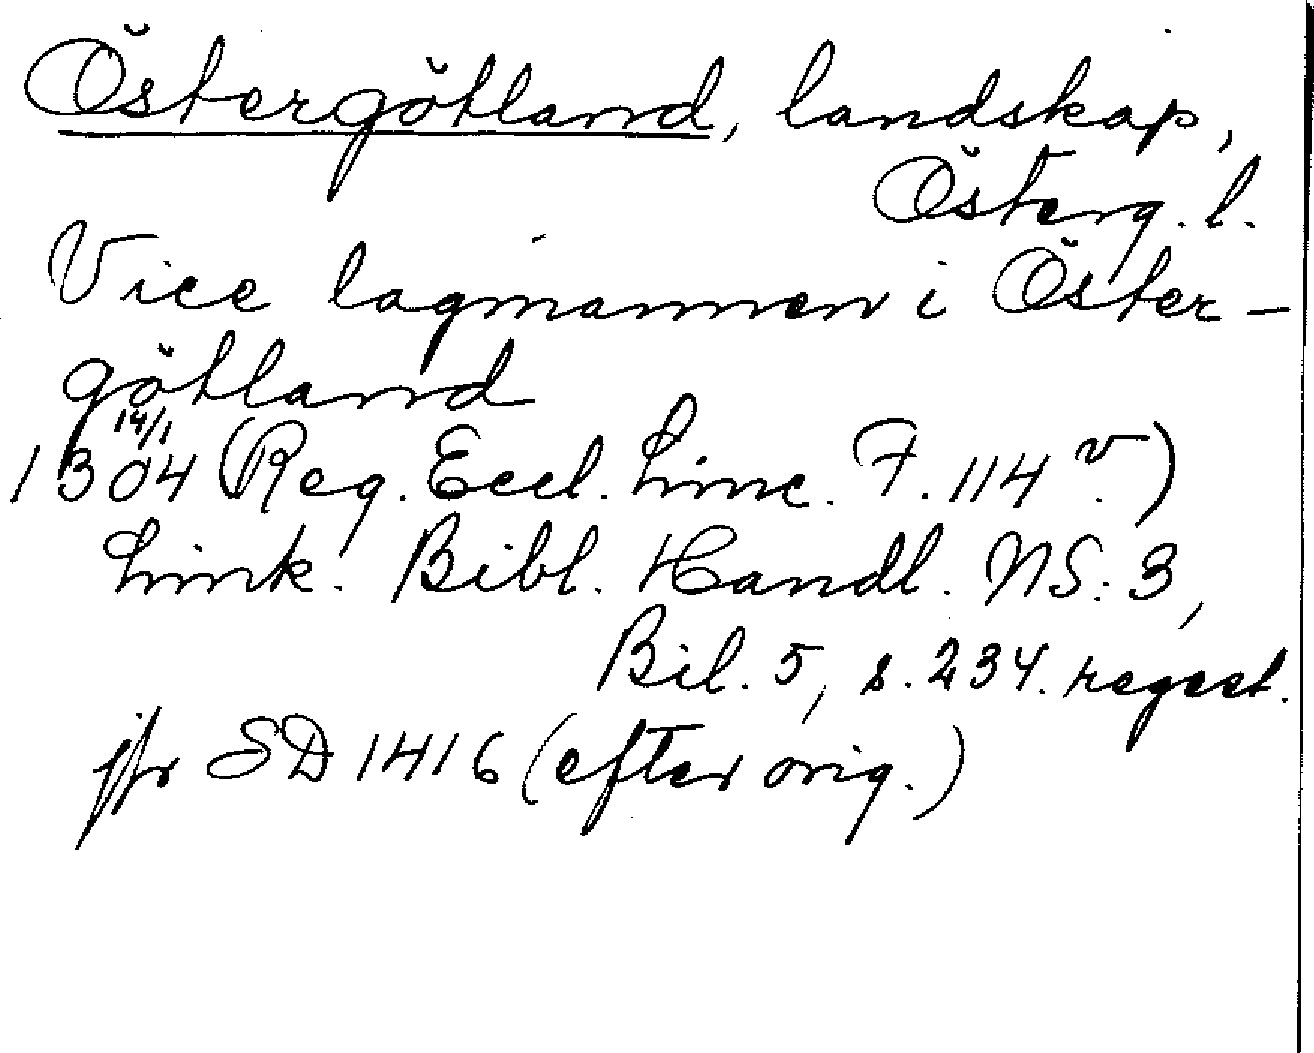 Östergötland, landskap,
Österg. l.
Vice lagmannen i Öster-
götland
14/1
1304 (Reg. Eccl. Linc. F. 114 v.)
Link. Bibl. Handl. NS: 3,
Bil. 5, s. 234. regest.
jfr SD 1416 (efter orig.)